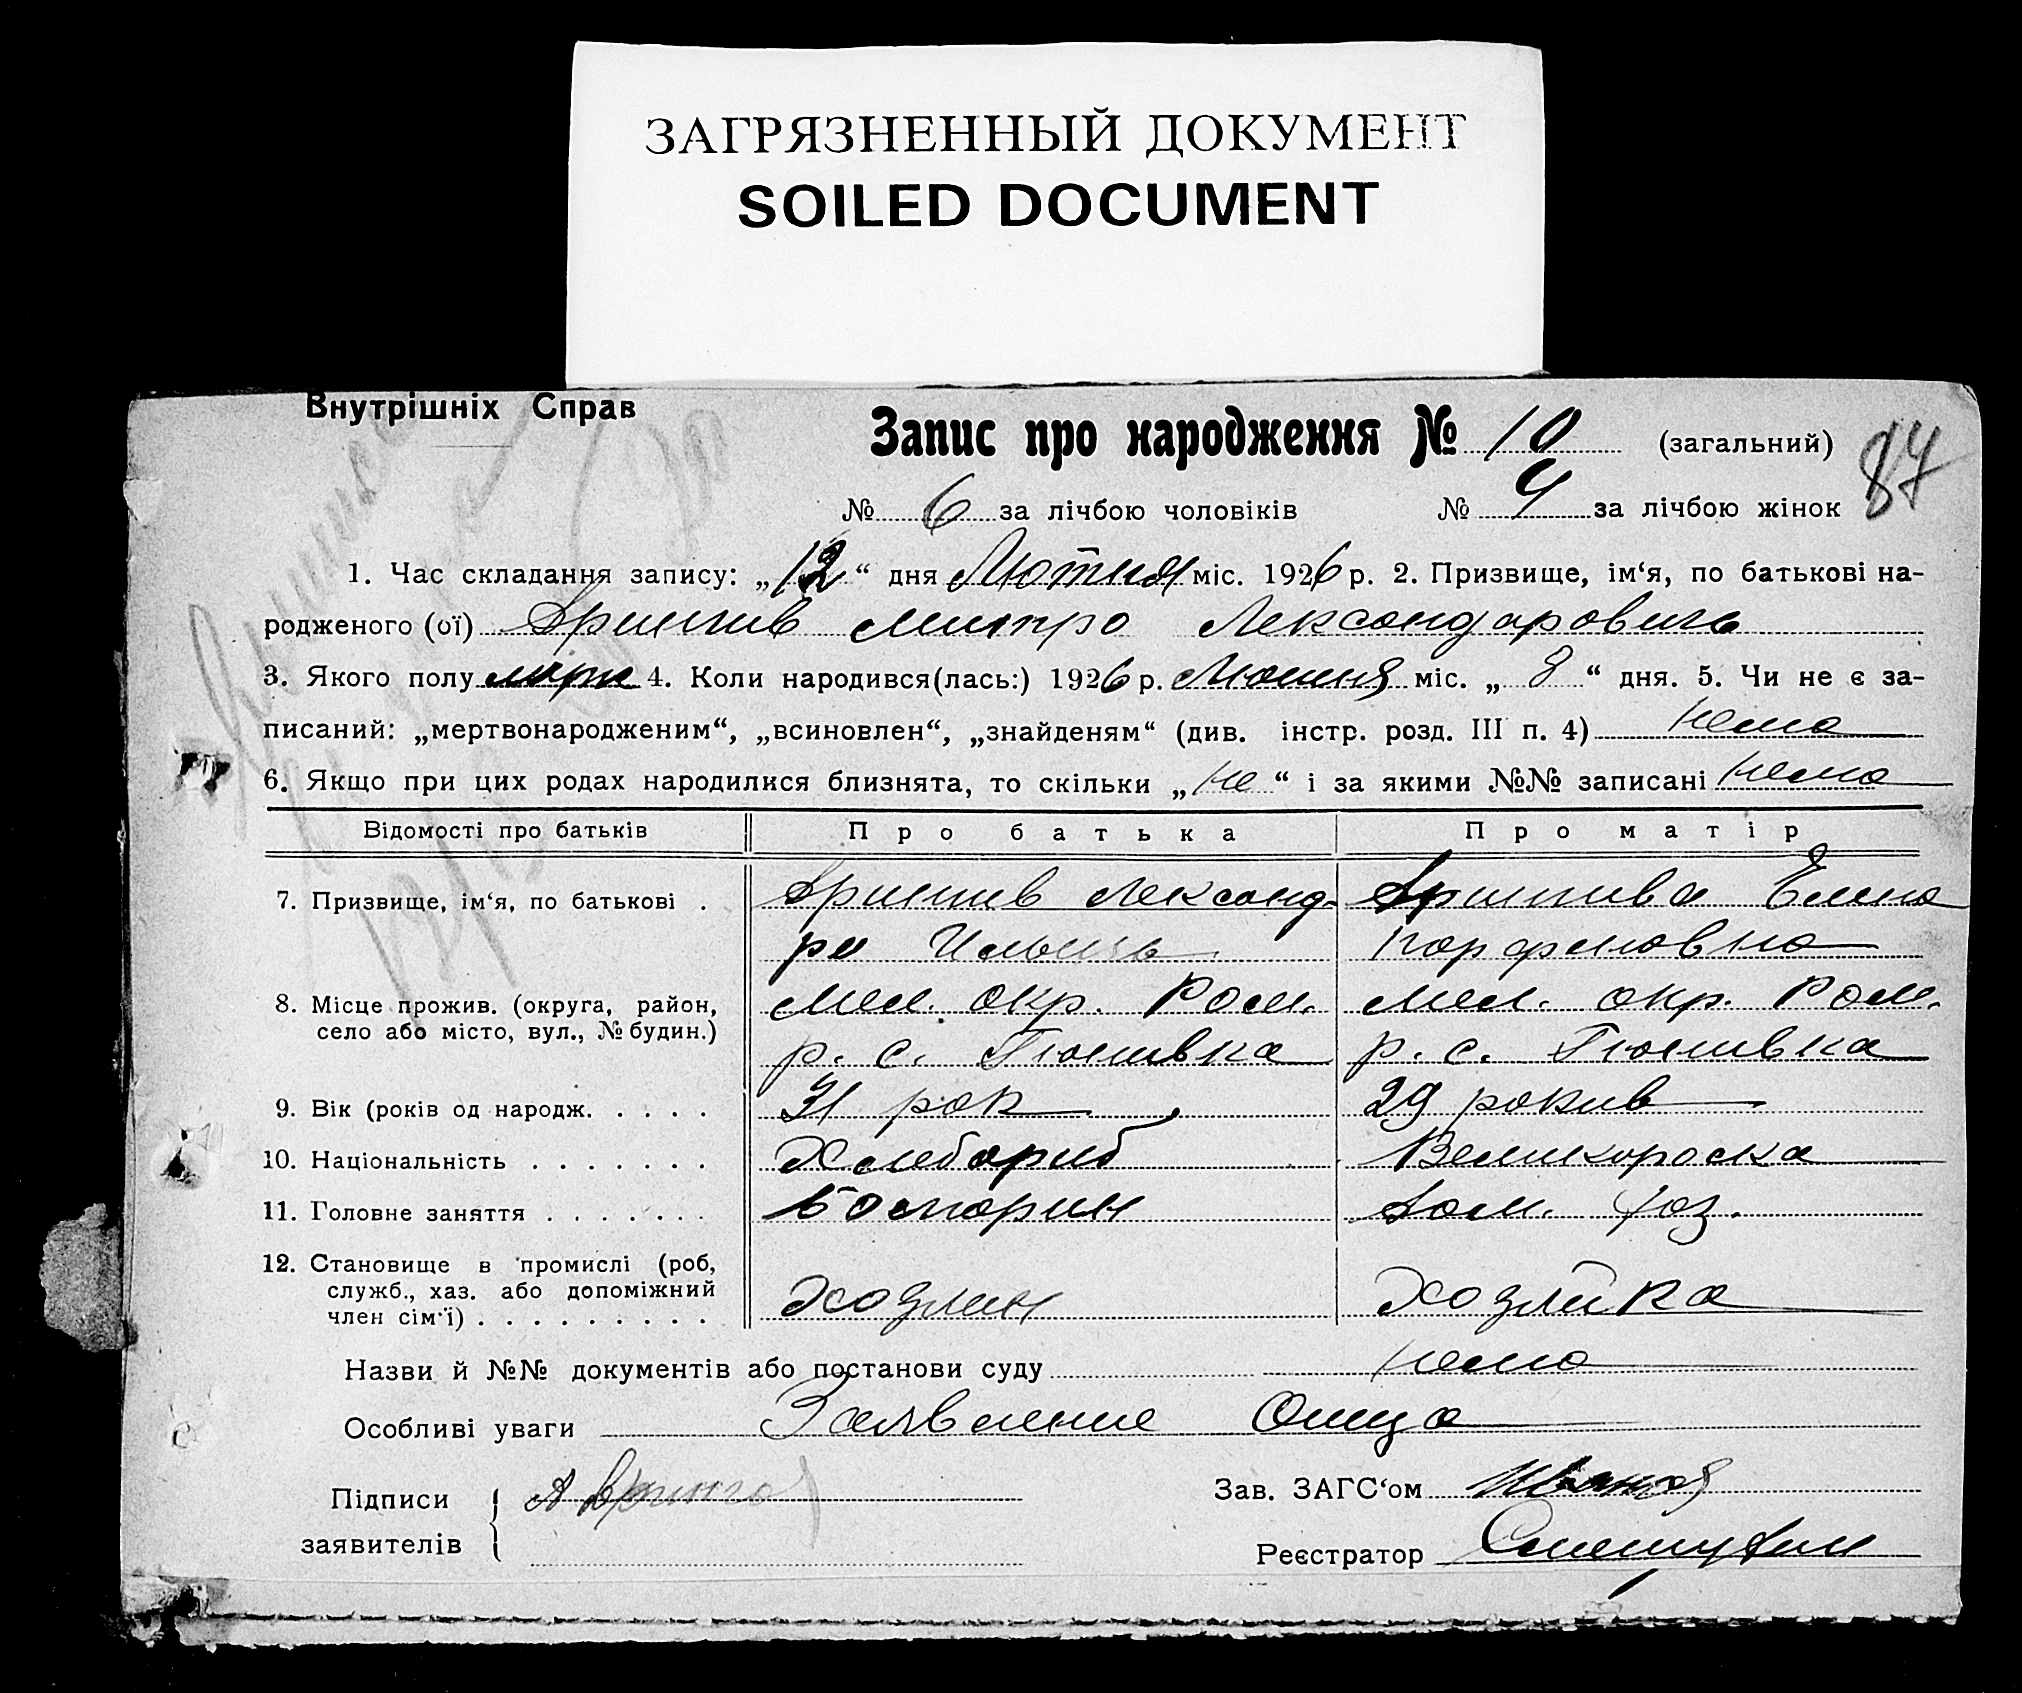 ЗАГРЯЗНЕННЫЙ ДОКУМЕНТ
SOILED DOCUMENT
Внутрішніх Справ
Запис про народження № 10 (загальний) 87
№ 6 за лічбою чоловіків № 4 за лічбою жінок
1. Час складання запису: „12“ дня Лютня міс. 1926 р. 2. Призвище, ім‘я, по батькові на-
родженого (ої) Митро Лександаровичь
3. Якого полу 4. Коли народився(лась:) 1926 р. Лютня міс. „8“ дня. 5. Чи не є за-
писаний: „мертвонародженим“, „всиновлен“, „знайденям“ (див. інстр. розд. III п. 4) нема
6. Якщо при цих родах народилися близнята, то скільки „не“ і за якими №№ записані нема
Відомості про батьків Про батька Про матір
7. Призвище, ім‘я, по батькові . Лександ- Елена
ро Ильичь Парфиловна
8. Місце прожив. (округа, район, Мел. окр. Ром. Мел. окр. Ром.
село або місто, вул., № будин.) р. с. р. с.
9. Вік (років од народж. . . . . 31 рок 29 рокив
10. Національність . . . . . . . Хлебориб Великороска
11. Головне заняття . . . . . . . Болгарин Дом. хоз.
12. Становище в промислі (роб,
служб., хаз. або допоміжний Хозяин Хозяйка
член сім‘ї) . . . . . . . . .
Назви й №№ документів або постанови суду нема
Особливі уваги Заявление Отца
Підписи Зав. ЗАГС‘ом
заявителів Реєстратор